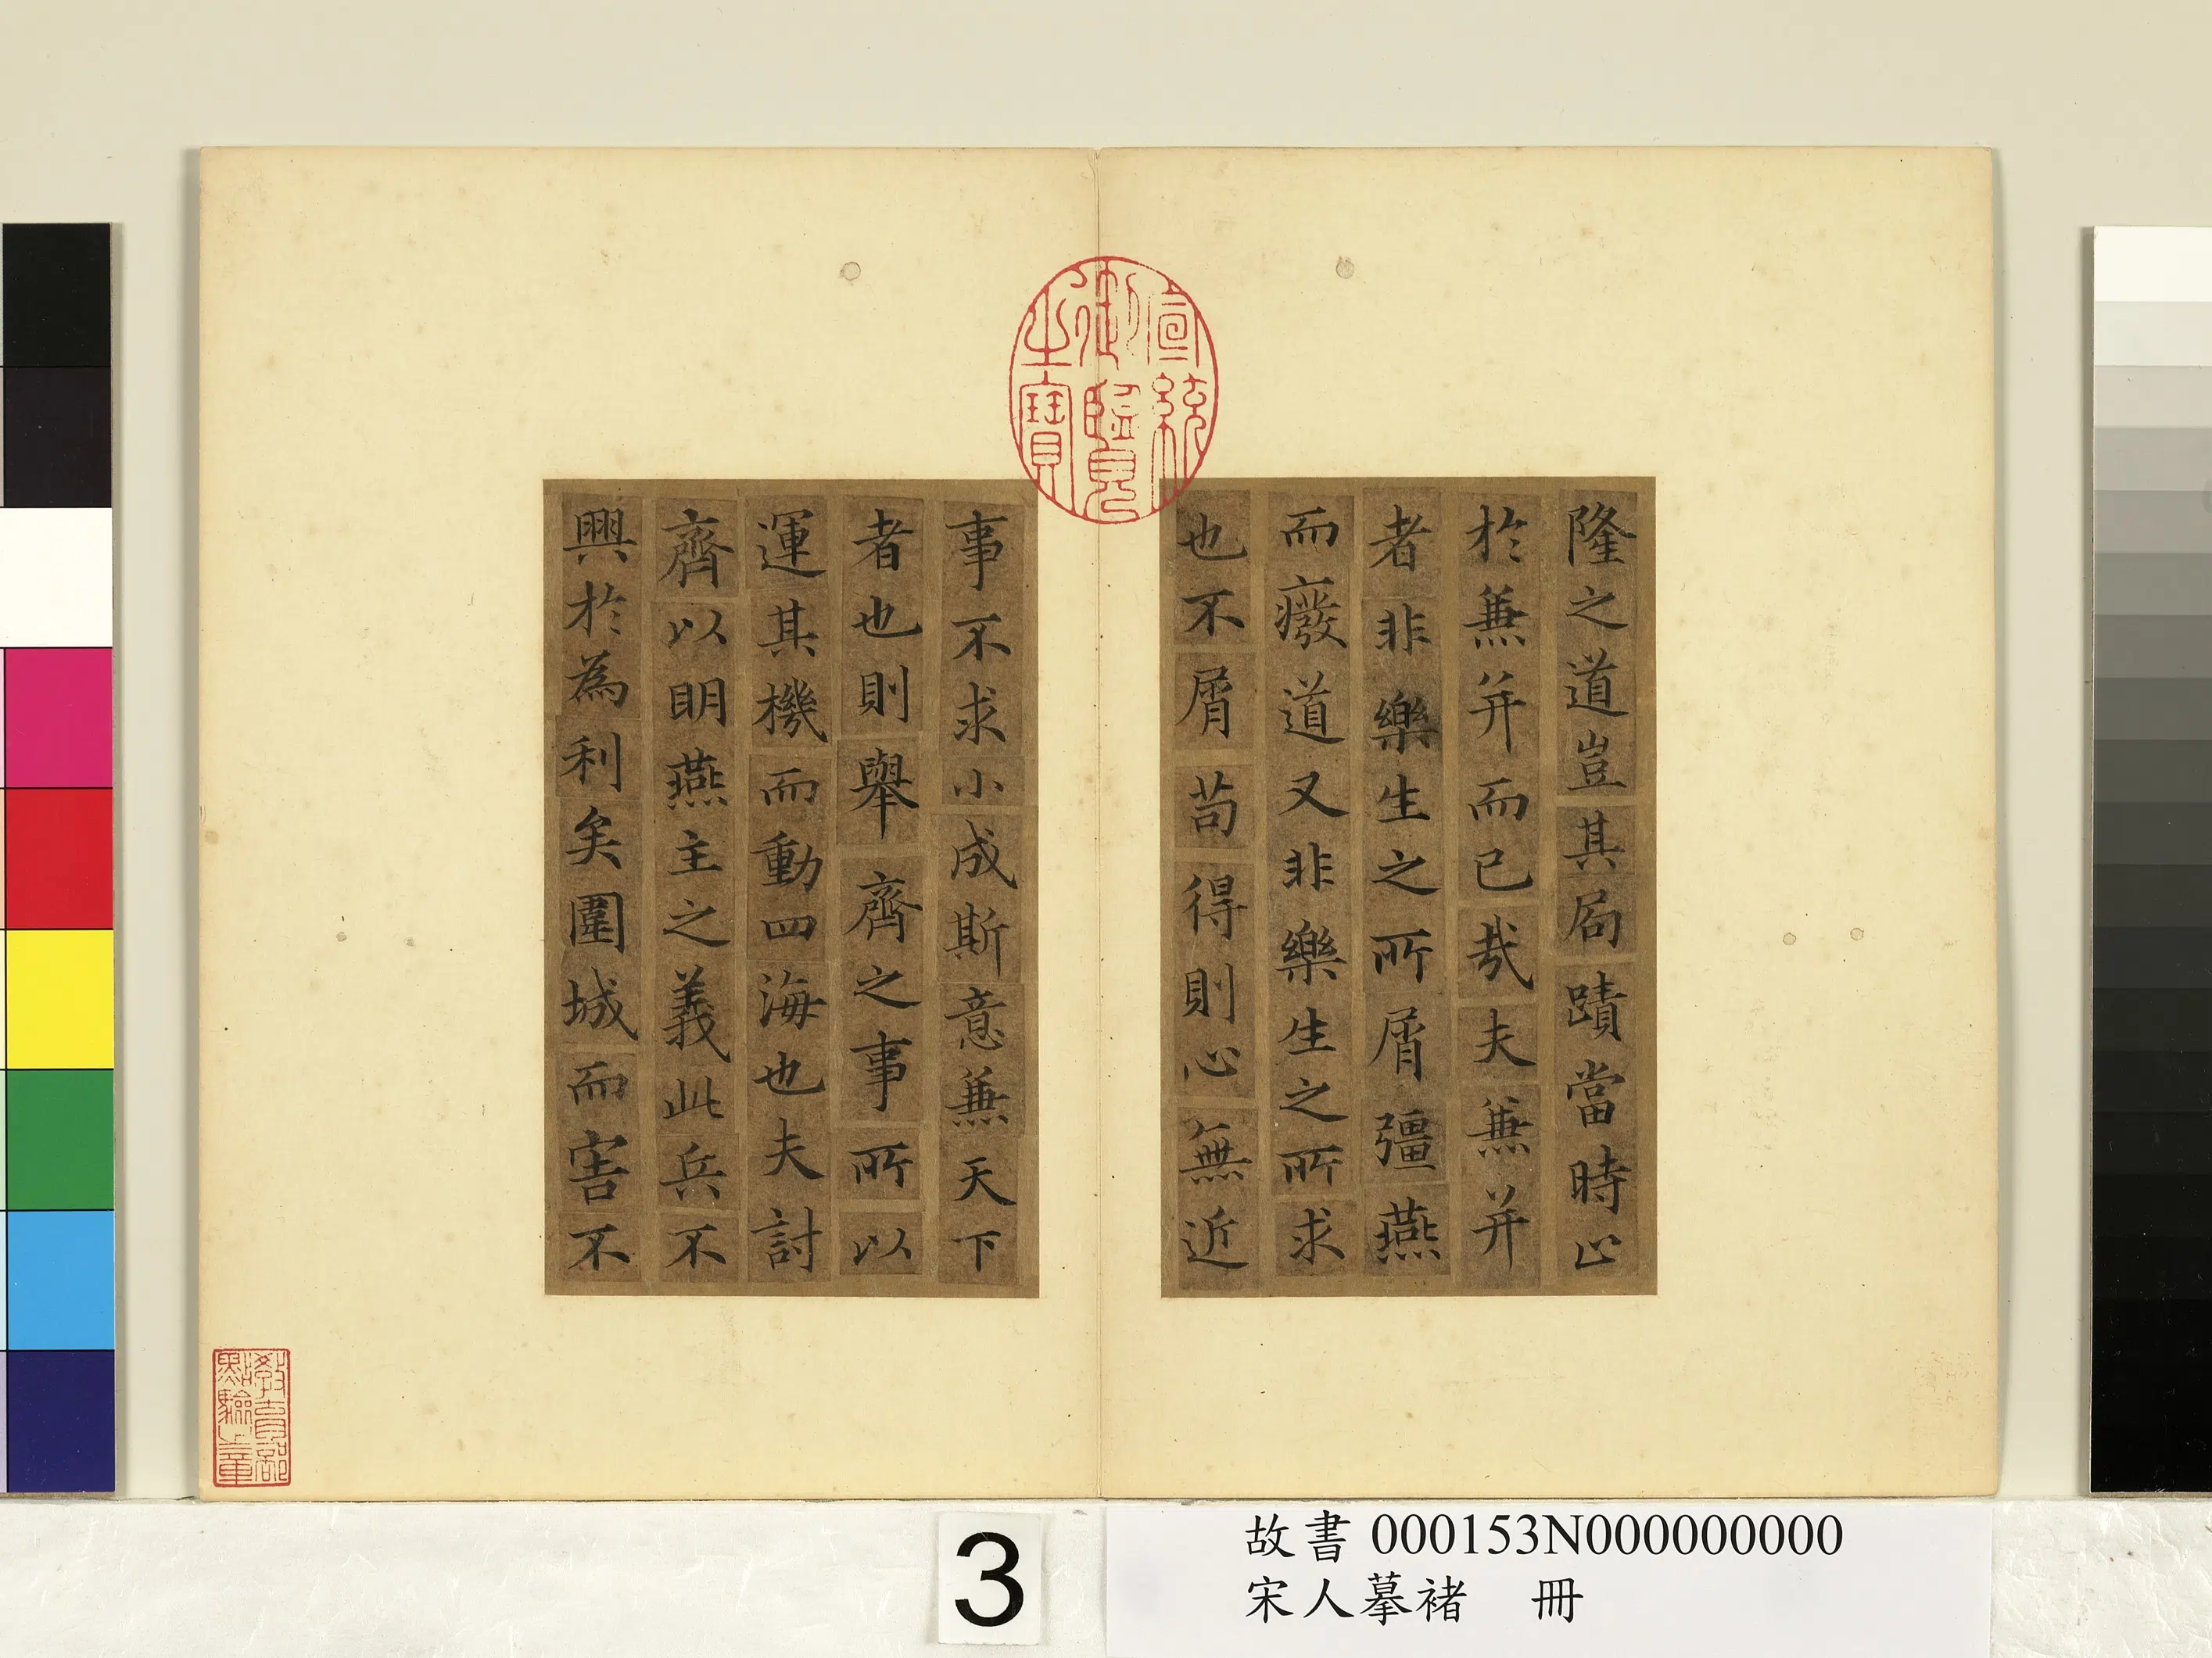 隆之道豈其局蹟當時止
於兼并而已㢤夫兼并
者非樂生之所屑彊燕
而癈道又非樂生之所求
也不屑茍得則心無近
事不求小成斯意兼天下
者也則舉齊之事所以
運其機而動四海也夫討
齊以明燕主之義此兵不
興於為利矣圍城而害不
宣統
御覽
之寶
教育部
點驗之章
3
故書000153N000000000
宋人摹褚 冊